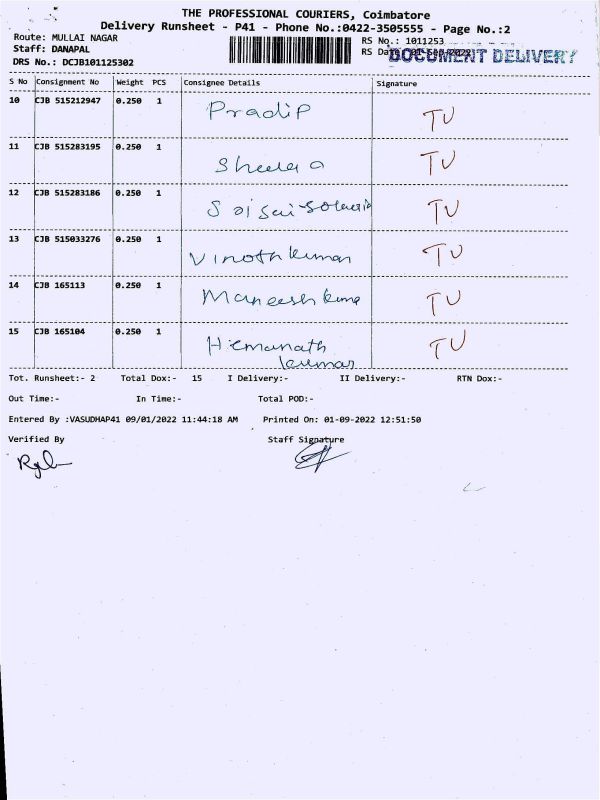 THE PROFESSIONAL COURIERS, Coimbatore
Delivery Runsheet - P41 - Phone No.:0422-3505555 - Page No.:2
Route: MULLAI NAGAR
Staff: DANAPAL
DRS No.: DCJB101125302
RS No.: 1011253
RS Date :01-Sep-2022
DOCUMENT DELIVERY
S No Consignment No Weight PCS Consignee Details Signature
10 CJB 515212947 0.250 1 Pradip TU
11 CJB 515283195 0.250 1 TU
12 CJB 515283186 0.250 1 TU
13 CJB 515033276 0.250 1 Vinoth kumar TU
14 CJB 165113 0.250 1 Maneesh TU
15 CJB 165104 0.250 1 Hemanath TU
kumar
Tot. Runsheet:- 2 Total Dox:- 15 I Delivery:- II Delivery:- RTN Dox:-
Out Time:- In Time:- Total POD:-
Entered By :VASUDHAP41 09/01/2022 11:44:18 AM Printed On: 01-09-2022 12:51:50
Verified By Staff Signature